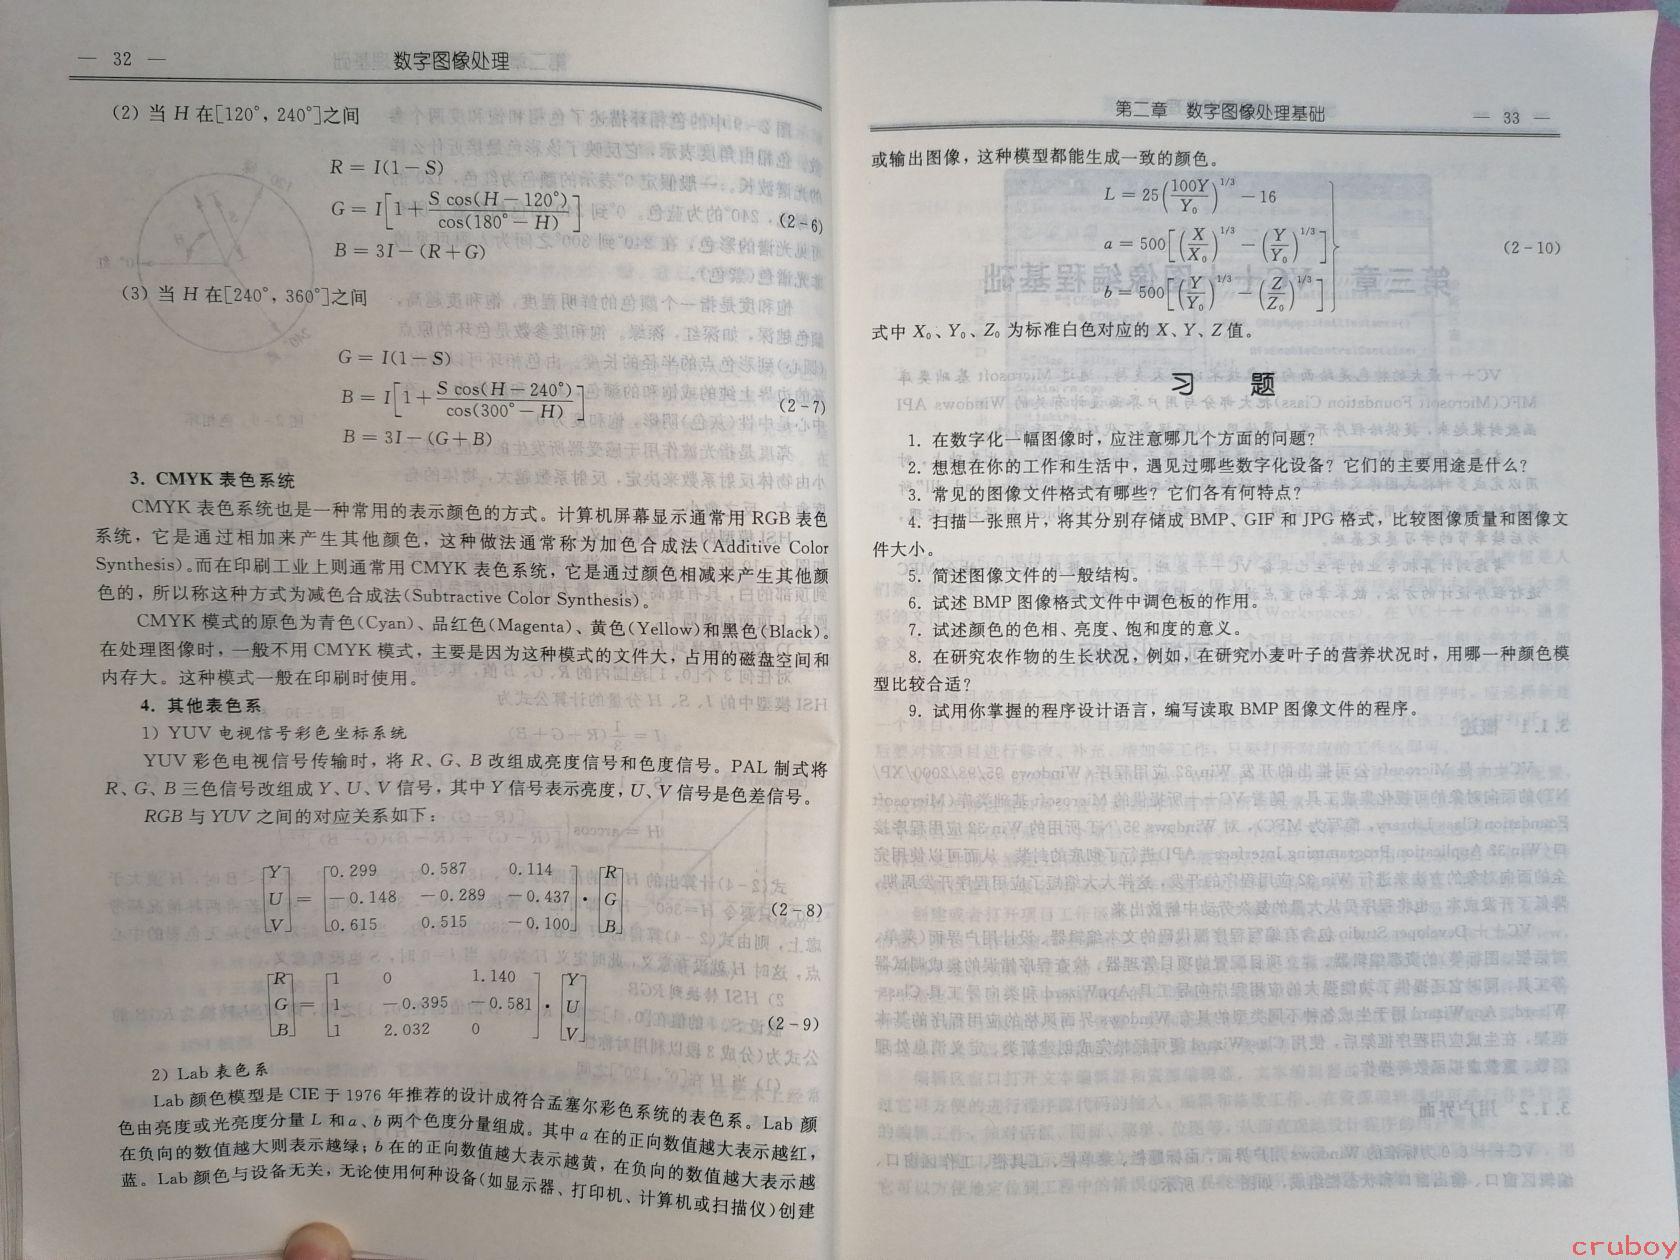 — 32 —
数字图像处理
(2) 当 H 在[120°, 240°]之间
R = I(1－S)
G = I[1+ S cos(H－120°) / cos(180°－H)]
(2-6)
B = 3I－(R+G)
(3) 当 H 在[240°, 360°]之间
G = I(1－S)
B = I[1+ S cos(H－240°) / cos(300°－H)]
(2-7)
B = 3I－(G+B)
3. CMYK 表色系统
CMYK 表色系统也是一种常用的表示颜色的方式。计算机屏幕显示通常用 RGB 表色
系统，它是通过相加来产生其他颜色，这种做法通常称为加色合成法(Additive Color
Synthesis)。而在印刷工业上则通常用 CMYK 表色系统，它是通过颜色相减来产生其他颜
色的，所以称这种方式为减色合成法(Subtractive Color Synthesis)。
CMYK 模式的原色为青色(Cyan)、品红色(Magenta)、黄色(Yellow)和黑色(Black)。
在处理图像时，一般不用 CMYK 模式，主要是因为这种模式的文件大，占用的磁盘空间和
内存大。这种模式一般在印刷时使用。
4. 其他表色系
1) YUV 电视信号彩色坐标系统
YUV 彩色电视信号传输时，将 R、G、B 改组成亮度信号和色度信号。PAL 制式将
R、G、B 三色信号改组成 Y、U、V 信号，其中 Y 信号表示亮度，U、V 信号是色差信号。
RGB 与 YUV 之间的对应关系如下：
[Y] [0.299 0.587 0.114] [R]
[U] = [－0.148 －0.289 －0.437] · [G] (2-8)
[V] [0.615 0.515 －0.100] [B]
[R] [1 0 1.140] [Y]
[G] = [1 －0.395 －0.581] · [U] (2-9)
[B] [1 2.032 0] [V]
2) Lab 表色系
Lab 颜色模型是 CIE 于 1976 年推荐的设计成符合孟塞尔彩色系统的表色系。Lab 颜
色由亮度或光亮度分量 L 和 a、b 两个色度分量组成。其中 a 在的正向数值越大表示越红，
在负向的数值越大则表示越绿；b 在的正向数值越大表示越黄，在负向的数值越大表示越
蓝。Lab 颜色与设备无关，无论使用何种设备(如显示器、打印机、计算机或扫描仪)创建
第二章 数字图像处理基础
— 33 —
或输出图像，这种模型都能生成一致的颜色。
L = 25(100Y/Y₀)^1/3 － 16
a = 500[(X/X₀)^1/3 － (Y/Y₀)^1/3]
(2-10)
b = 500[(Y/Y₀)^1/3 － (Z/Z₀)^1/3]
式中 X₀、Y₀、Z₀ 为标准白色对应的 X、Y、Z 值。
习 题
1. 在数字化一幅图像时，应注意哪几个方面的问题？
2. 想想在你的工作和生活中，遇见过哪些数字化设备？它们的主要用途是什么？
3. 常见的图像文件格式有哪些？它们各有何特点？
4. 扫描一张照片，将其分别存储成 BMP、GIF 和 JPG 格式，比较图像质量和图像文
件大小。
5. 简述图像文件的一般结构。
6. 试述 BMP 图像格式文件中调色板的作用。
7. 试述颜色的色相、亮度、饱和度的意义。
8. 在研究农作物的生长状况，例如，在研究小麦叶子的营养状况时，用哪一种颜色模
型比较合适？
9. 试用你掌握的程序设计语言，编写读取 BMP 图像文件的程序。
cruboy